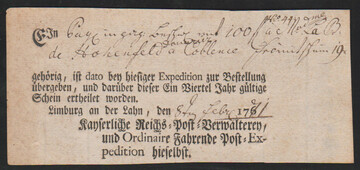 EIn
100
de Hohenfeld à Coblence
gehörig, ist dato bey hiesiger Expedition zur Bestellung
übergeben, und darüber dieser Ein Viertel Jahr gültige
Schein ertheilet worden.
Limburg an der Lahn, den 8ten Febr. 1781
Kayserliche Reichs-Post-Verwalterey,
und Ordinaire Fahrende Post-Ex-
pedition hieselbst.